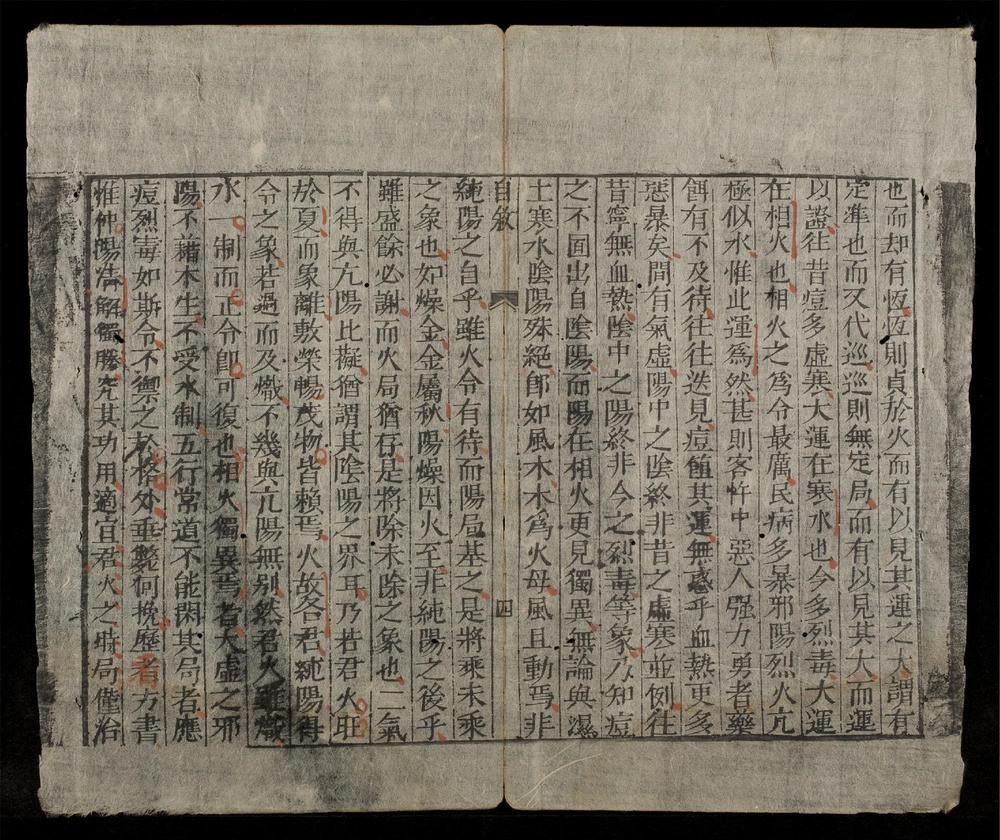 也而却有恆恆則貞於火而有以見其運之大謂有
定準也而又代巡巡則無定局而有以見其大而運
以證往昔痘多虛寒大運在寒水也今多烈毒大運
在相火也相火之爲令最厲民病多暴邪陽烈火亢
極似水惟此運爲然甚則客忤中惡人强力勇者藥
餌有不及待往往迭見痘值其運無惑乎血熱更多
惡暴矣間有氣虛陽中之陰終非昔之虛寒並例往
昔寧無血熱陰中之陽終非今之烈毒等象乃知痘
之不囿出自陰陽而陽在相火更見獨異無論與濕
土寒水陰陽殊絕即如風木木爲火母風且動焉非
自敘 四
純陽之自乎雖火令有待而陽局基之是將乘未乘
之象也如燥金金屬秋陽燥因火至非純陽之後乎
雖盛餘必謝而火局猶存是將除未除之象也二氣
不得與亢陽比擬猶謂其陰陽之界耳乃若君火旺
於夏而象離敷榮暢茂物皆賴焉火故各君純陽得
令之象若過而及熾不幾與亢陽無别然君火雖熾
水一制而正令卽可復也相火獨異焉者大虛之邪
陽不藉木生不受水制五行常道不能閑其局者應
痘烈毒如斯令不禦之於格外垂斃何挽歷者方書
惟仲陽清解獨勝究其功用適宜君火之時局僅治